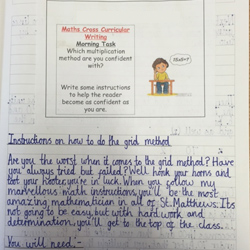 Maths Cross Curricular
Writing
Morning Task
Which multiplication
method are you confident
with?
Write some instructions
to help the reader
become as confident as
you are.
Instructions on how to do the grid method
Are you the worst when it comes to the grid method? Have
you always tried but failed? Well honk your horns and
toot your hooter, you're in luck. When you follow my
marvellous math instructions you'll be the most
amazing mathematician in all of St. Matthews. Its
not going to be easy, but with hard work and
determination you'll get to the top of the class.
You will need:-